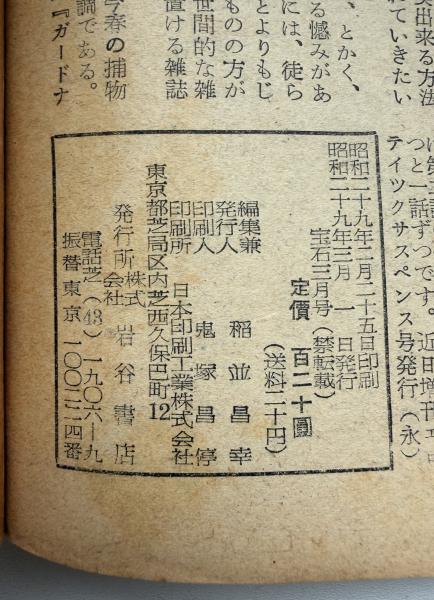 突出来る方法
れていきたい
、とかく、
る憾みがあ
には、徒ら
とよりもじ
ものの方が
世間的な雑
置ける雑誌
今春の捕物
調である。
『ガードナ
つと一話ずつです。近日増刊
テイツクサスペンス号発行(永)
昭和二十九年二月二十五日印刷
昭和二十九年三月一日発行
宝石三月号(禁転載)
定價 百二十圓
(送料二十円)
編集兼
発行人 稲並昌幸
印刷人 鬼塚昌停
印刷所 日本印刷工業株式会社
東京都芝局区内芝西久保巴町12
発行所 株式会社 岩谷書店
電話芝(43)一九〇六—九
振替東京 一〇〇二二四番